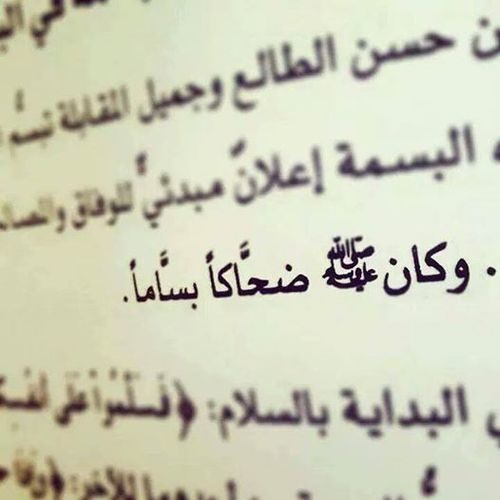 في
ن حسن الطالع وجميل المقابلة تبسم
البسمة إعلانٌ مبدئيٌ للوفاق والمصا
. وكان ﷺ ضحَّاكاً بسَّاماً.
ي البداية بالسلام: ﴿فَسَلِّمُوا عَلَى أَنفُسِكُ